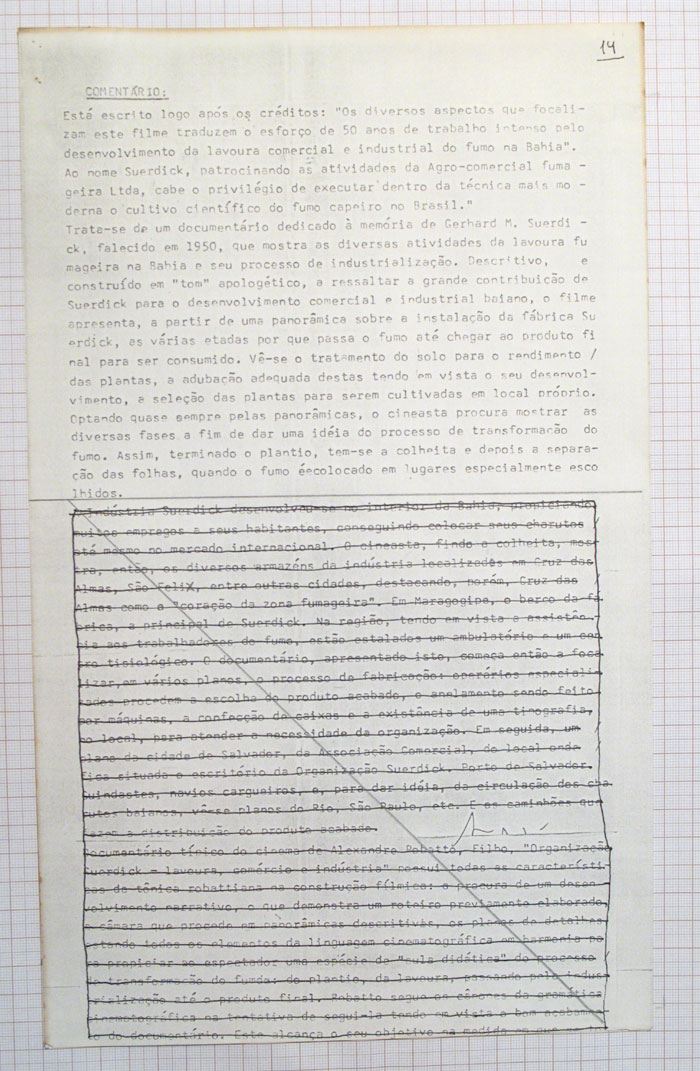 14
COMENTÁRIO:
Está escrito logo após os créditos: "Os diversos aspectos que focali-
zam este filme traduzem o esforço de 50 anos de trabalho intenso pelo
desenvolvimento da lavoura comercial e industrial do fumo na Bahia".
Ao nome Suerdick, patrocinando as atividades da Agro-comercial fuma -
geira Ltda, cabe o privilégio de executar dentro da técnica mais mo -
derna o cultivo científico do fumo capeiro no Brasil."
Trata-se de um documentário dedicado à memória de Gerhard M. Suerdi -
ck, falecido em 1950, que mostra as diversas atividades da lavoura fu
mageira na Bahia e seu processo de industrialização. Descritivo, e
construído em "tom" apologético, a ressaltar a grande contribuição de
Suerdick para o desenvolvimento comercial e industrial baiano, o filme
apresenta, a partir de uma panorâmica sobre a instalação da fábrica Su
erdick, as várias etadas por que passa o fumo até chegar ao produto fi
nal para ser consumido. Vê-se o tratamento do solo para o rendimento /
das plantas, a adubação adequada destas tendo em vista o seu desenvol-
vimento, a seleção das plantas para serem cultivadas em local próprio.
Optando quase sempre pelas panorâmicas, o cineasta procura mostrar as
diversas fases a fim de dar uma idéia do processo de transformação do
fumo. Assim, terminado o plantio, tem-se a colheita e depois a separa-
ção das folhas, quando o fumo éecolocado em lugares especialmente esco
lhidos.
A indústria Suerdick desenvolveu-se no interior da Bahia, propiciando
muitos empregos a seus habitantes, conseguindo colocar seus charutos
até mesmo no mercado internacional. O cineasta, findo a colheita, mos-
tra, então, os diversos armazéns da indústria localizados em Cruz das
Almas, São FeliX, entre outras cidades, destacando, porém, Cruz das
Almas como o "coração da zona fumageira". Em Maragogipe, o berço da fá-
brica, a principal de Suerdick. Na região, tendo em vista a assistên-
cia aos trabalhadores do fumo, estão estalados um ambulatório e um cen
tro tisiológico. O documentário, apresentado isto, começa então a foca
lizar, em vários planos, o processo de fabricação: operários especiali
zados procedem a escolha do produto acabado, o anelamento sendo feito
por máquinas, a confecção de caixas e a existência de uma tipografia,
no local, para atender a necessidade da organização. Em seguida, um
plano da cidade de Salvador, da Associação Comercial, do local onde
fica situada o escritório da Organização Suerdick. Porto de Salvador.
Guindastes, navios cargueiros, e, para dar idéia, da circulação dos cha
rutos baianos, vê-se planos do Rio, São Paulo, etc. E os caminhões que
fazem a distribuição do produto acabado.
Documentário típico do cinema de Alexandre Robatto, Filho, "Organização
Suerdick - lavoura, comércio e indústria" possui todas as característi-
cas da tônica robattiana na construção fílmica: a procura de um desen -
volvimento narrativo, o que demonstra um roteiro previamente elaborado,
a câmara que procede em panorâmicas descritivas, os planos de detalhes
estando todos os elementos da linguagem cinematográfica em harmonia pa
ra propiciar ao espectador uma espécie de "aula didática" do processo
de transformação do fumo: do plantio, da lavoura, passando pela indus
trialização até o produto final. Robatto segue os cânones da gramática
cinematográfica na tentativa de segui-la tendo em vista o bom acabamen
to do documentário. Este alcança o seu objetivo na medida em que